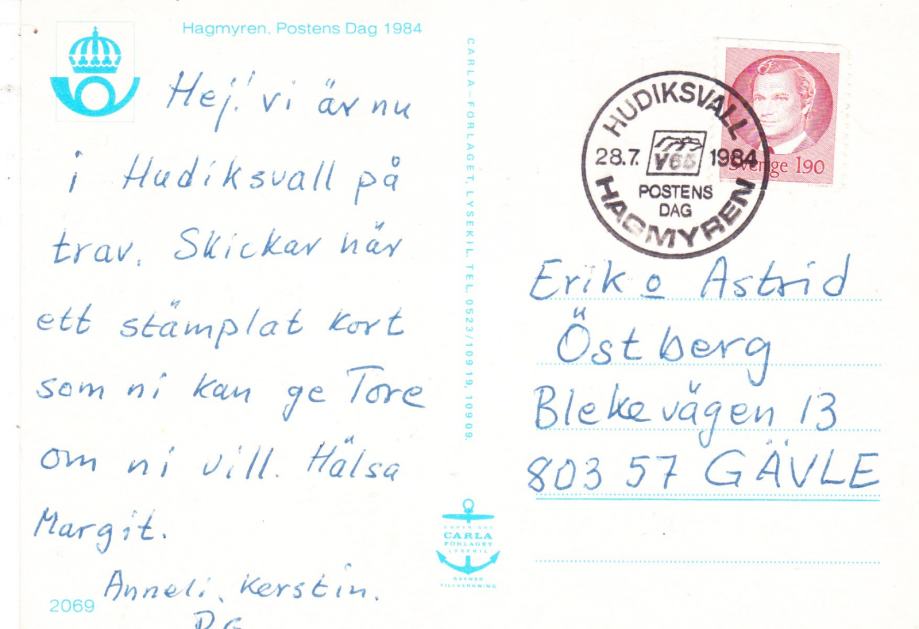 Hagmyren. Postens Dag 1984
Hej! vi är nu
i Hudiksvall på
trav. Skickar här
ett stämplat kort
som ni kan ge Tore
om ni vill. Hälsa
Margit.
Anneli, Kerstin.
2069
CARLA-FÖRLAGET, LYSEKIL. TEL. 0523/109 19, 109 09.
CARLA
FÖRLAGET
LYSEKIL
SVENSK
TILLVERKNING
HUDIKSVALL
28.7. V65 1984
POSTENS
DAG
HAGMYREN
Sverige 190
Erik o Astrid
Östberg
Blekevägen 13
803 57 GÄVLE